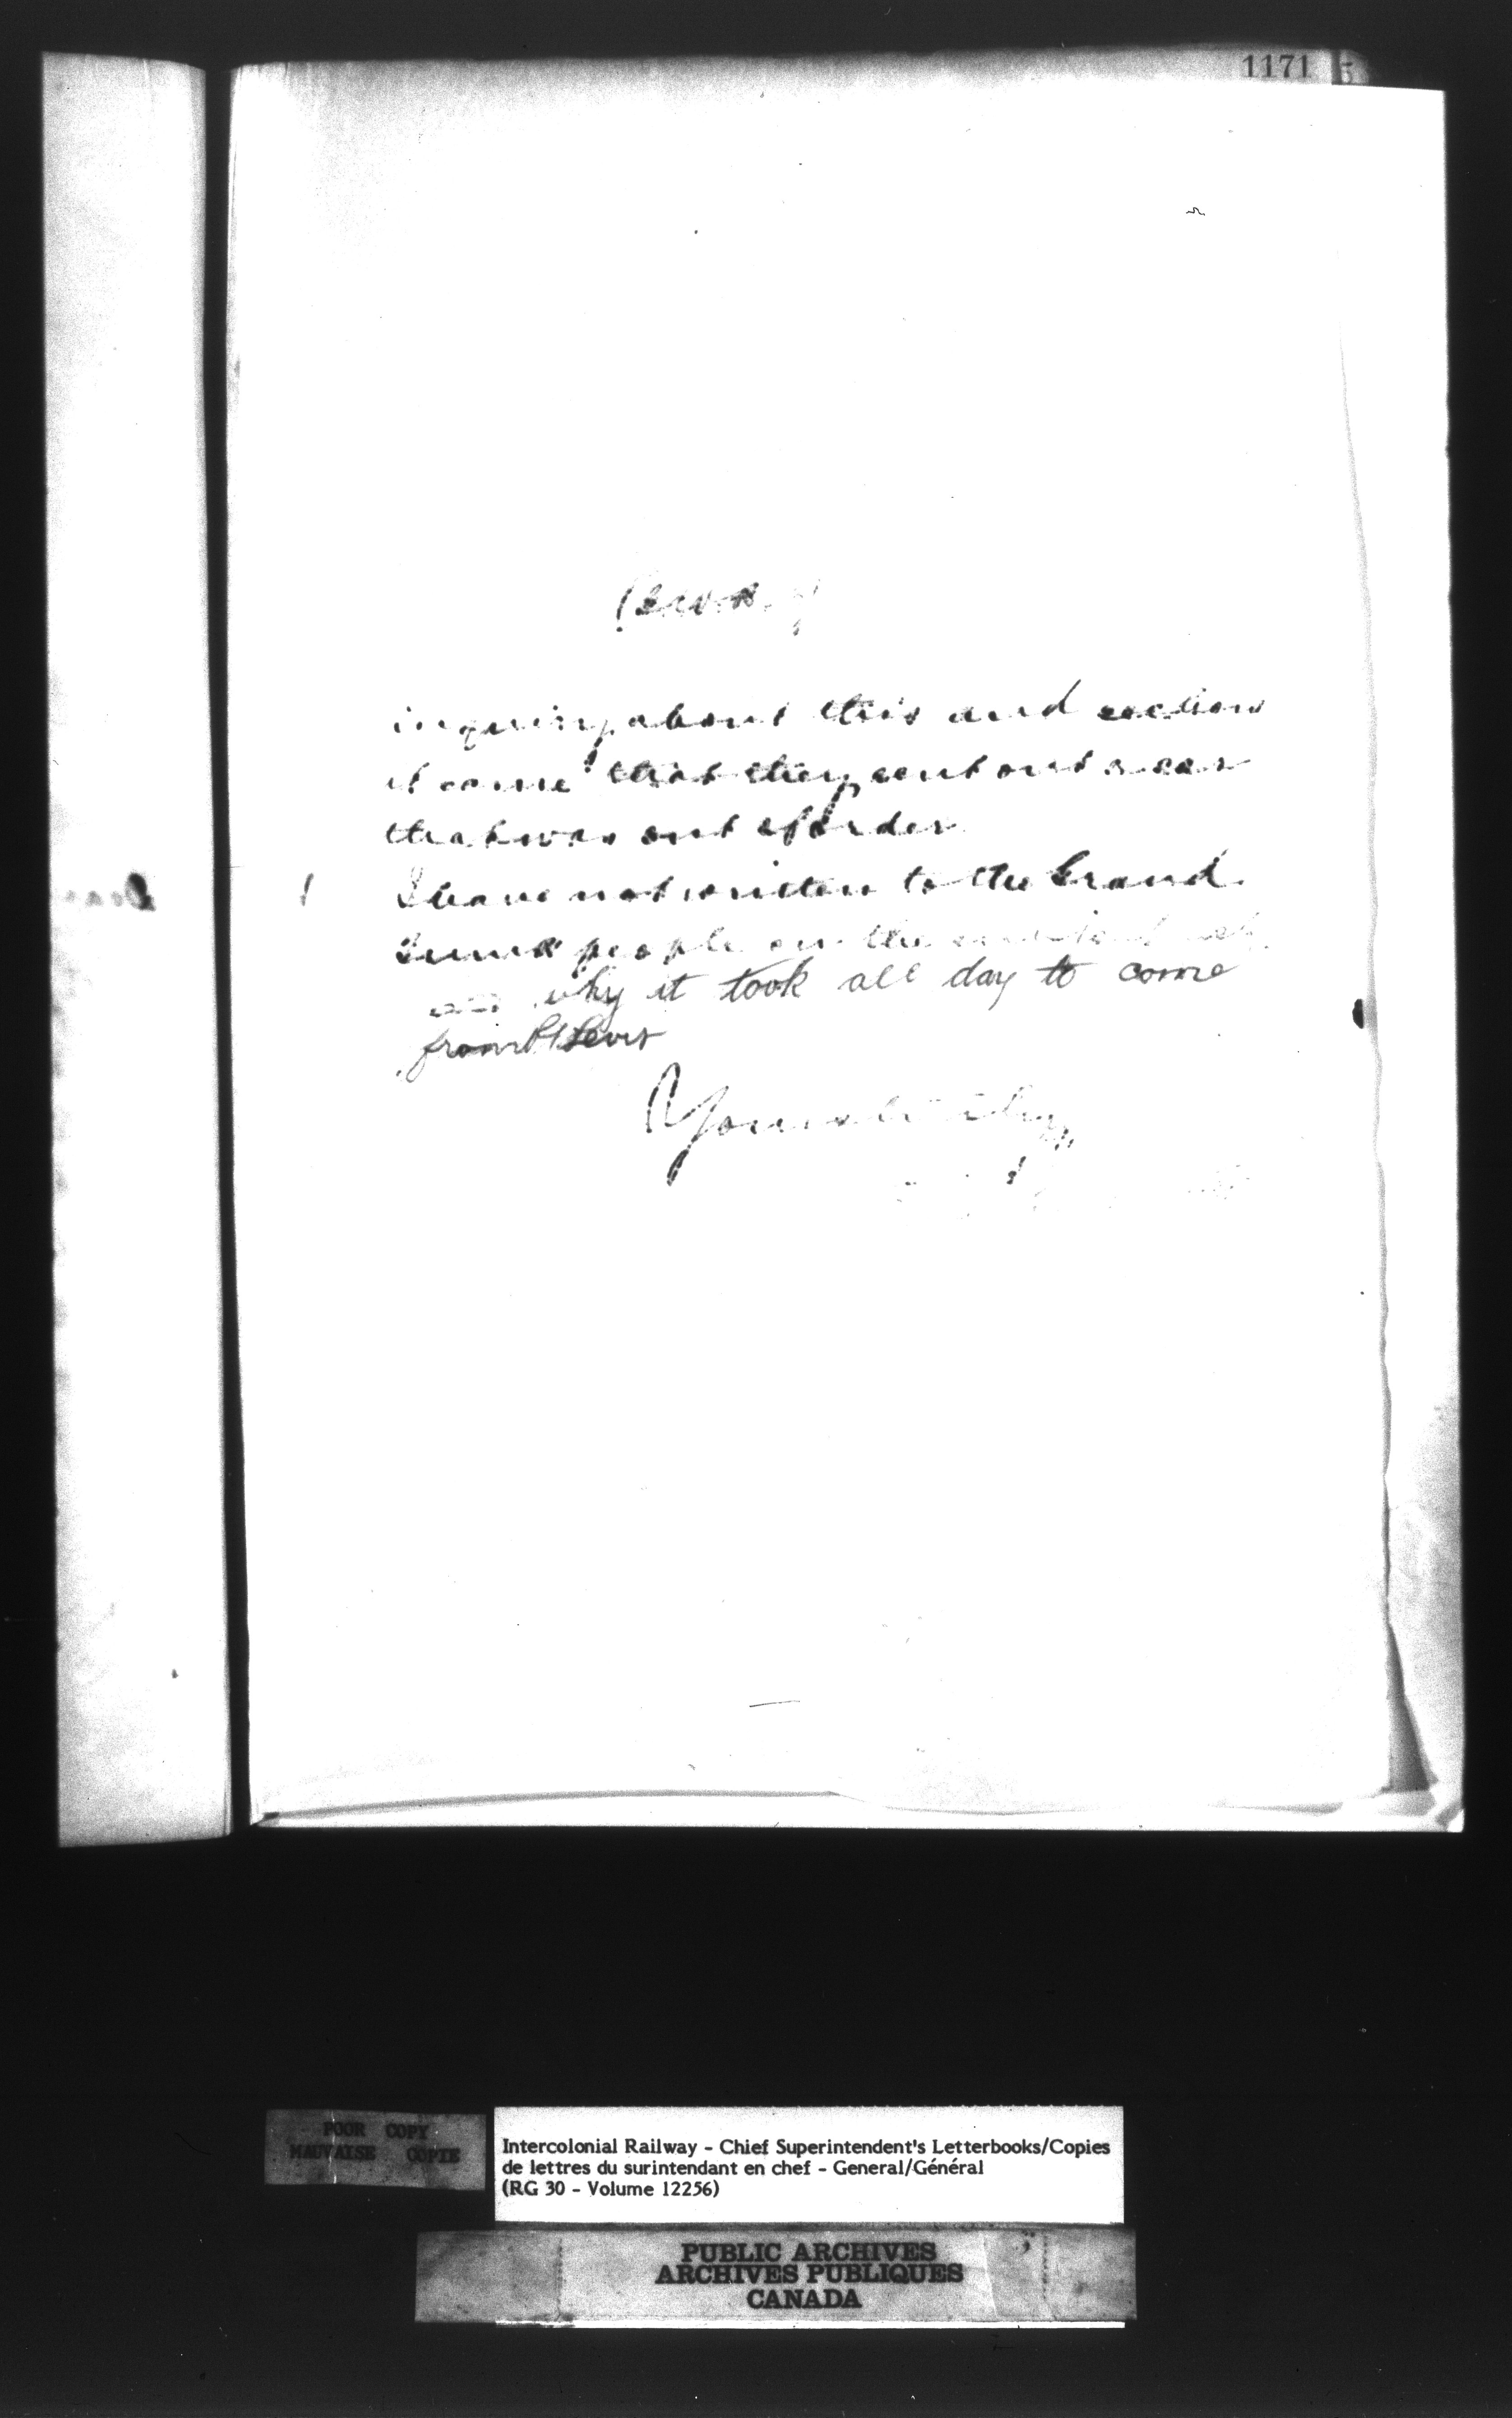 1171 5
inquiry about this and
it came that they sent out a car
that was out of order
I have not written to the Grand
Trunk people on the
why it took all day to come
from Pt Levis
Yours truly
POOR COPY
MAUVAISE COPIE
Intercolonial Railway - Chief Superintendent's Letterbooks/Copies
de lettres du surintendant en chef - General/Général
(RG 30 - Volume 12256)
PUBLIC ARCHIVES
ARCHIVES PUBLIQUES
CANADA